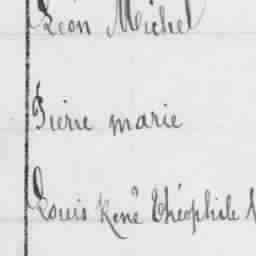 Léon Michel
Pierre marie
Louis René Théophile